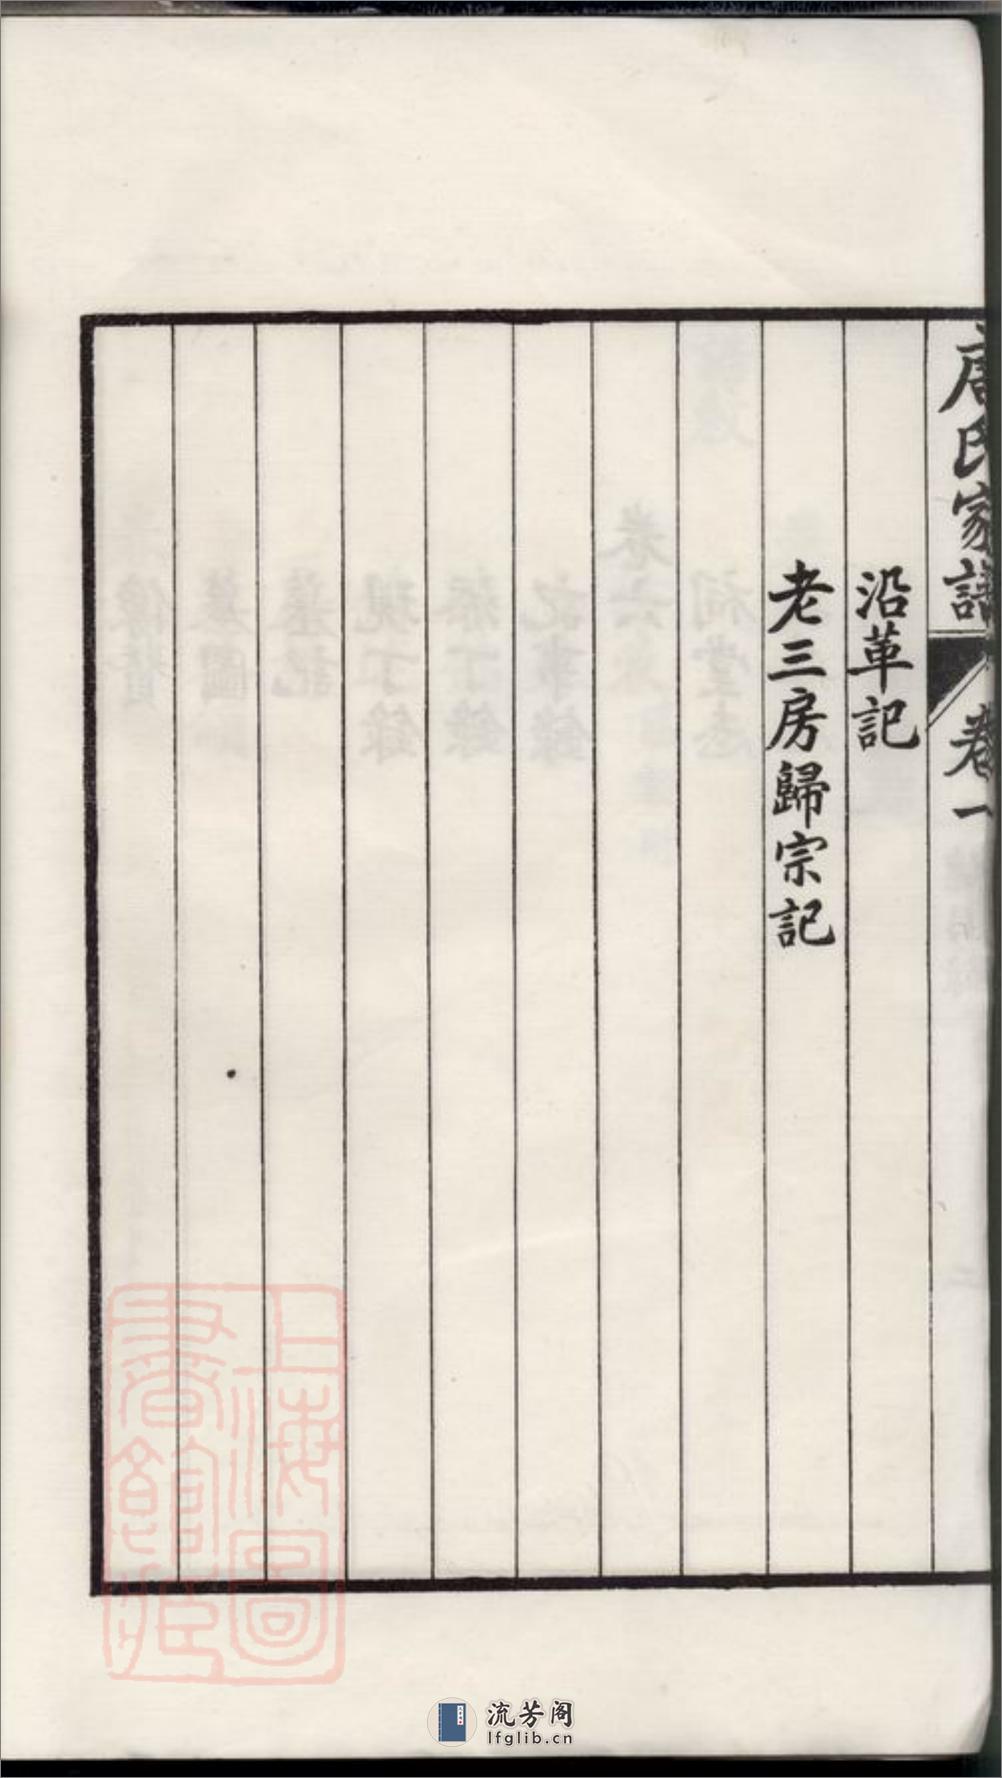 唐氏家譜 卷一
沿革記
老三房歸宗記
上海圖
書館藏
流芳阁
lfglib.cn